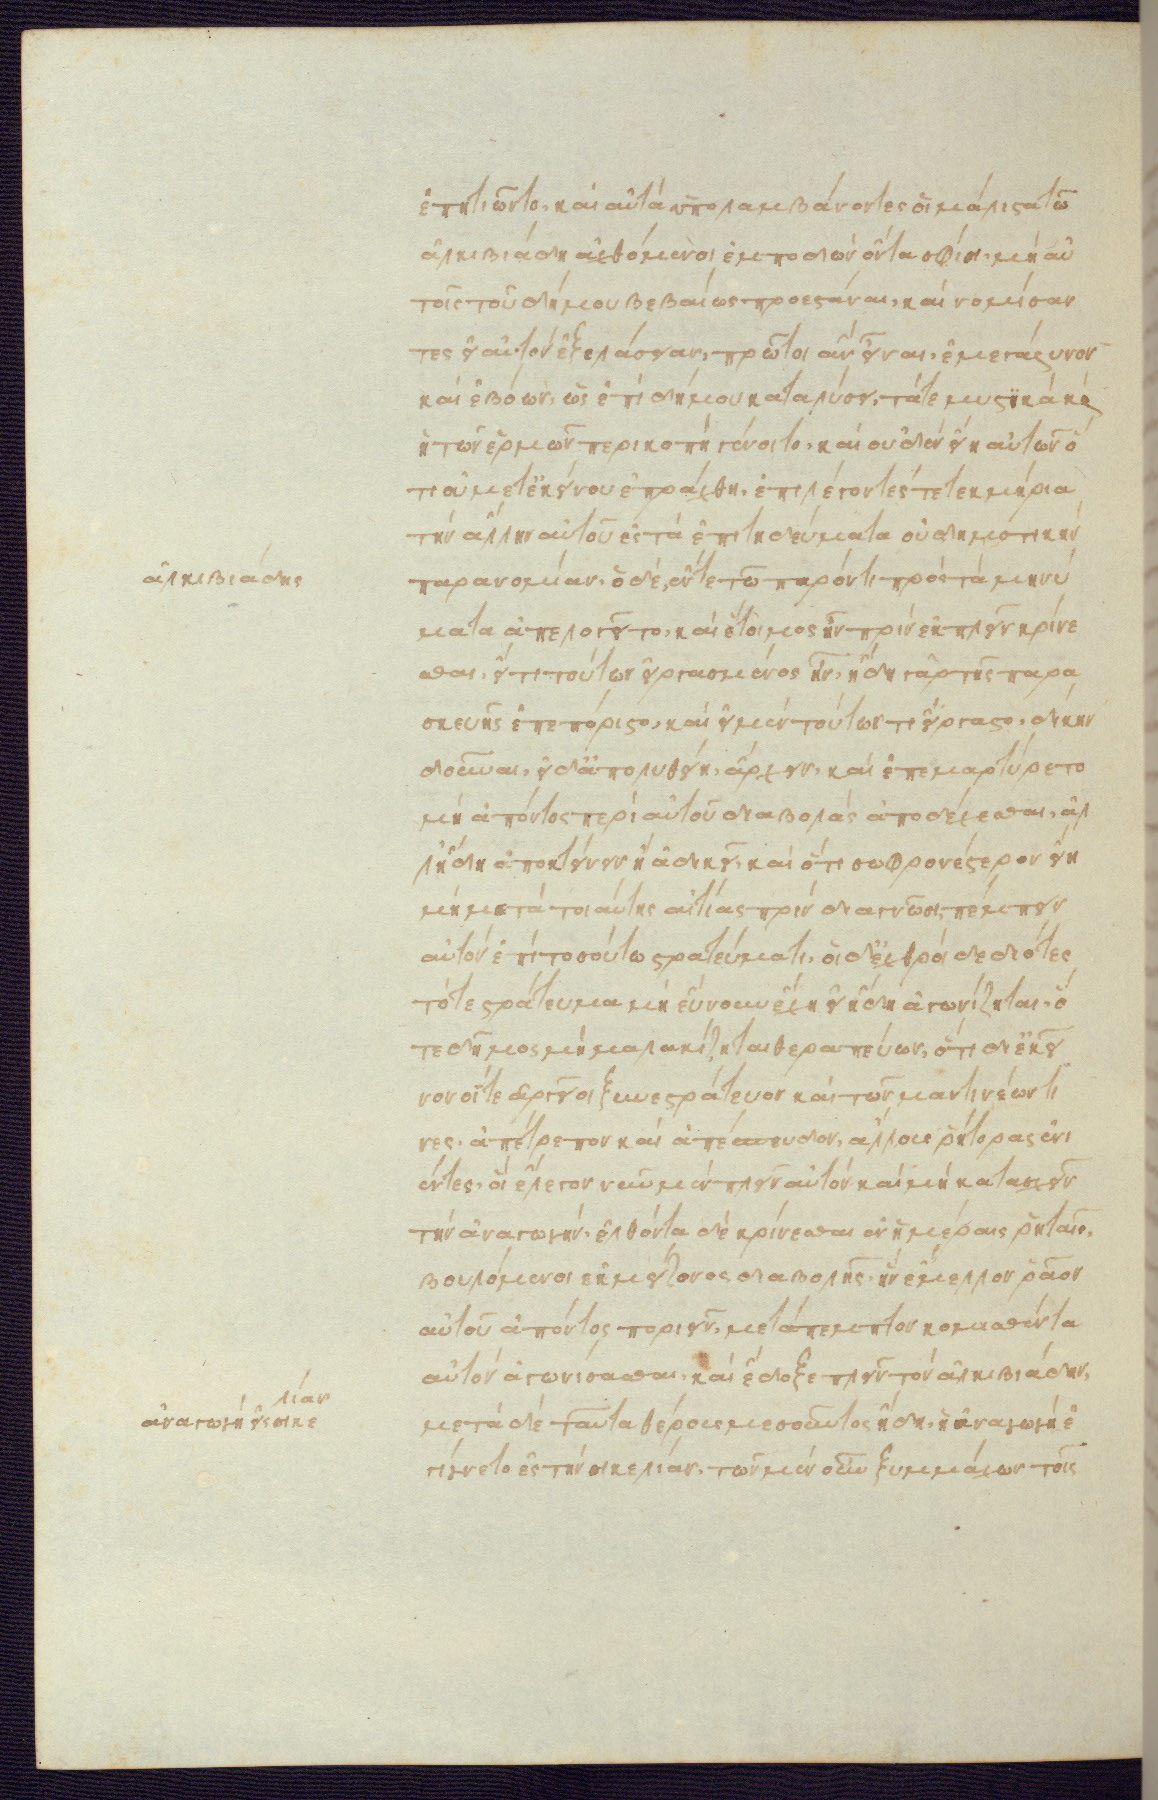 ἐπῃτιῶντο, καὶ αὐτὰ ὑπολαμβάνοντες οἱ μάλιστα τῶ
ἀλκιβιάδη ἀχθόμενοι ἐμποδὼν ὄντα σφίσι, μὴ αὐ
τοῖς τοῦ δήμου βεβαίως προεστάναι, καὶ νομίσαν
τες εἰ αὐτὸν ἐξελάσειαν, πρῶτοι ἂν εἶναι, ἐμεγάλυνον
καὶ ἐβόων, ὡς ἐπὶ δήμου καταλύσει, τά τε μυστικὰ καὶ
ἡ τῶν ἑρμῶν περικοπὴ γένοιτο, καὶ οὐδὲν εἴη αὐτῶν ὅ
τι οὐ μετ' ἐκείνου ἐπράχθη, ἐπιλέγοντές τε τεκμήρια
τὴν ἄλλην αὐτοῦ ἐς τὰ ἐπιτηδεύματα οὐ δημοτικὴν
ἀλκιβιάδης
παρανομίαν. ὁ δὲ, ἔν τε τῶ παρόντι πρὸς τὰ μηνύ
ματα ἀπελογεῖτο, καὶ ἕτοιμος ἦν πρὶν ἐκπλεῖν κρίνε
σθαι, εἴ τι τούτων εἰργασμένος ἦν, ἤδη γὰρ τῆς παρα
σκευῆς ἐπεπόριστο, καὶ εἰ μὲν τούτων τι εἴργαστο, δίκην
δοῦναι, εἰ δ' ἀπολυθείη, ἄρχειν. καὶ ἐπεμαρτύρετο
μὴ ἀπόντος περὶ αὐτοῦ διαβολὰς ἀποδέχεσθαι, ἀλ
λ' ἤδη ἀποκτείνειν εἰ ἀδικεῖ, καὶ ὅτι σωφρονέστερον εἴη
μὴ μετὰ τοιαύτης αἰτίας πρὶν διαγνῶσι, πέμπειν
αὐτὸν ἐπὶ τοσούτω στρατεύματι. οἱ δ' ἐχθροὶ δεδιότες
τό τε στράτευμα μὴ εὔνουν ἔχη εἰ ἤδη ἀγωνίζηται, ὅ
τε δῆμος μὴ μαλακίζηται θεραπεύων, ὅτι δι' ἐκεῖ
νον οἵ τ' ἀργεῖοι ξυνεστράτευον καὶ τῶν μαντινέων τι
νες, ἀπέτρεπον καὶ ἀπέσπευδον, ἄλλους ῥήτορας ἐνι
έντες, οἳ ἔλεγον νῦν μὲν πλεῖν αὐτὸν καὶ μὴ κατασχεῖν
τὴν ἀναγωγὴν, ἐλθόντα δὲ κρίνεσθαι ἐν ἡμέραις ῥηταῖς,
βουλόμενοι ἐκ μείζονος διαβολῆς, ἣν ἔμελλον ῥᾶον
αὐτοῦ ἀπόντος ποριεῖν, μετάπεμπτον κομισθέντα
αὐτὸν ἀγωνίσασθαι. καὶ ἔδοξε πλεῖν τὸν ἀλκιβιάδην.
ἀναγωγὴ εἰς σικε
λίαν
μετὰ δὲ ταῦτα θέρους μεσοῦντος ἤδη, ἡ ἀναγωγὴ ἐ
γίγνετο ἐς τὴν σικελίαν. τῶν μὲν οὖν ξυμμάχων τοῖς